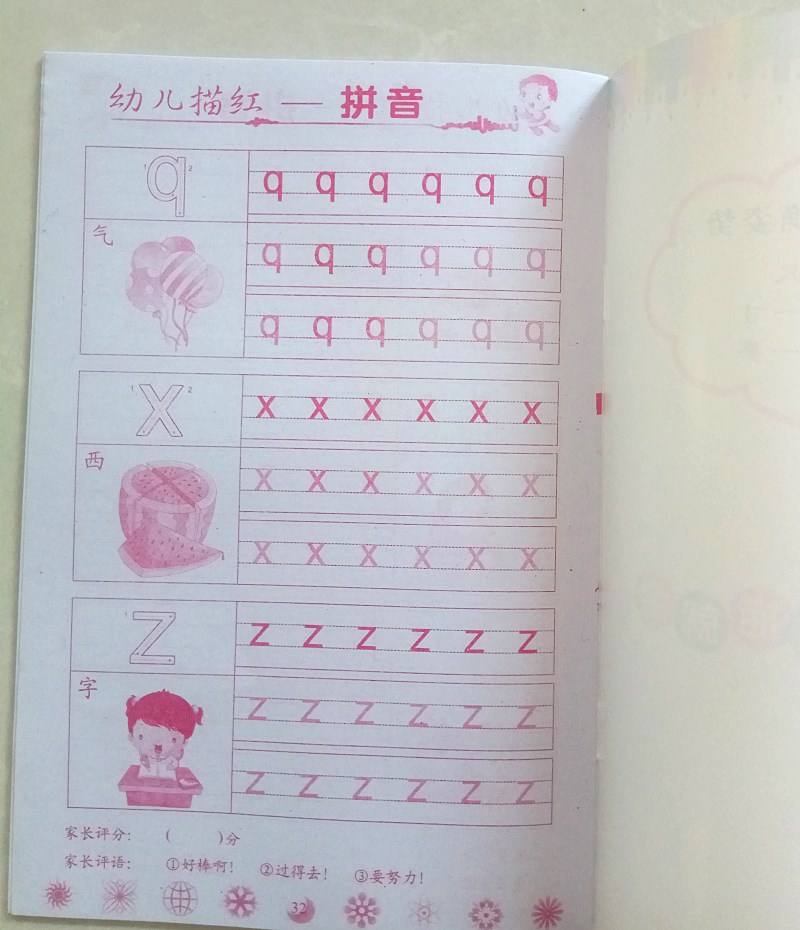 幼儿描红 — 拼音
1 q 2
q q q q q q
气
q q q q q q
q q q q q q
1 x 2
x x x x x x
西
x x x x x x
x x x x x x
1 z
z z z z z z
字
z z z z z z
z z z z z z
家长评分： （ ）分
家长评语： ①好棒啊！ ②过得去！ ③要努力！
32